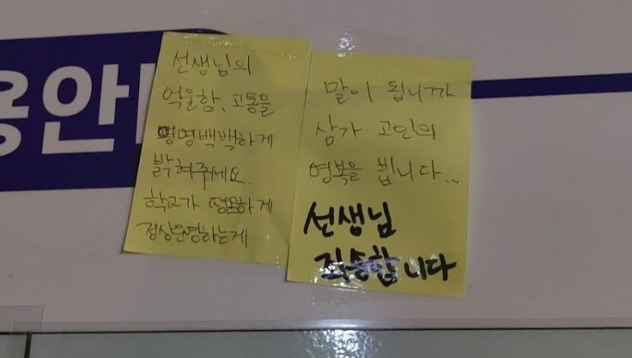 용안
선생님의
억울함, 고통을
명명백백하게
밝혀주세요.
학교가 평온하게
정상운영하는게
말이 됩니까
삼가 고인의
명복을 빕니다...
선생님
죄송합니다